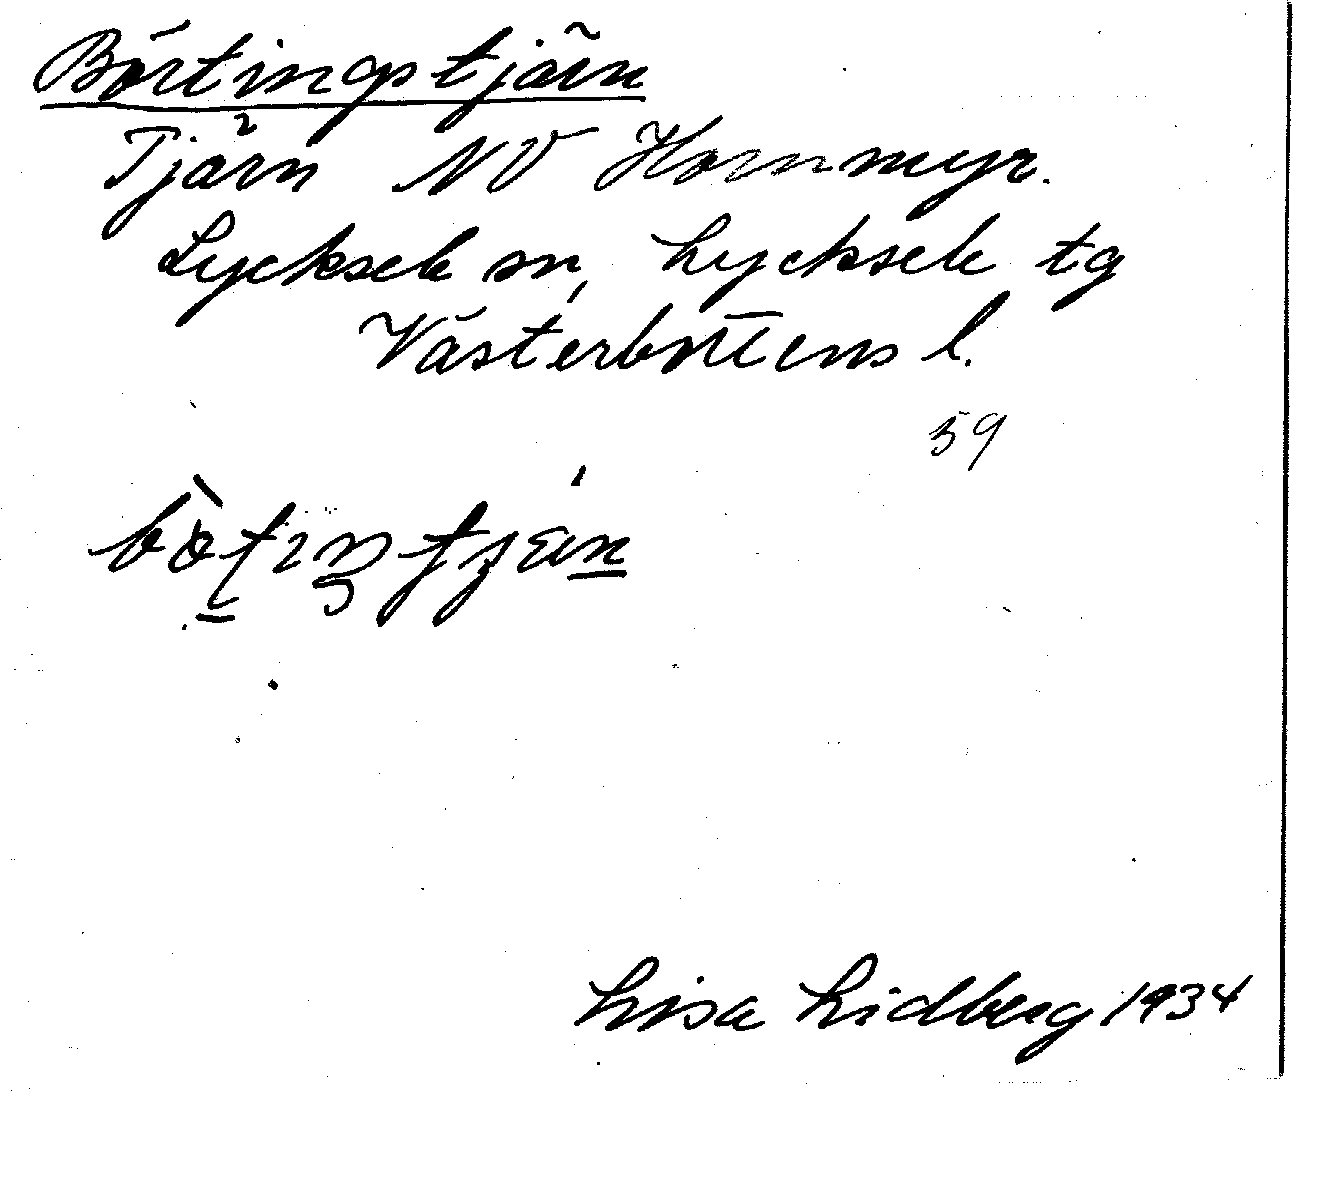 Börtingstjärn
Tjärn NV Hornmyr.
Lycksele sn, Lycksele tg
Västerbottens l.
59
Lisa Lidberg 1934